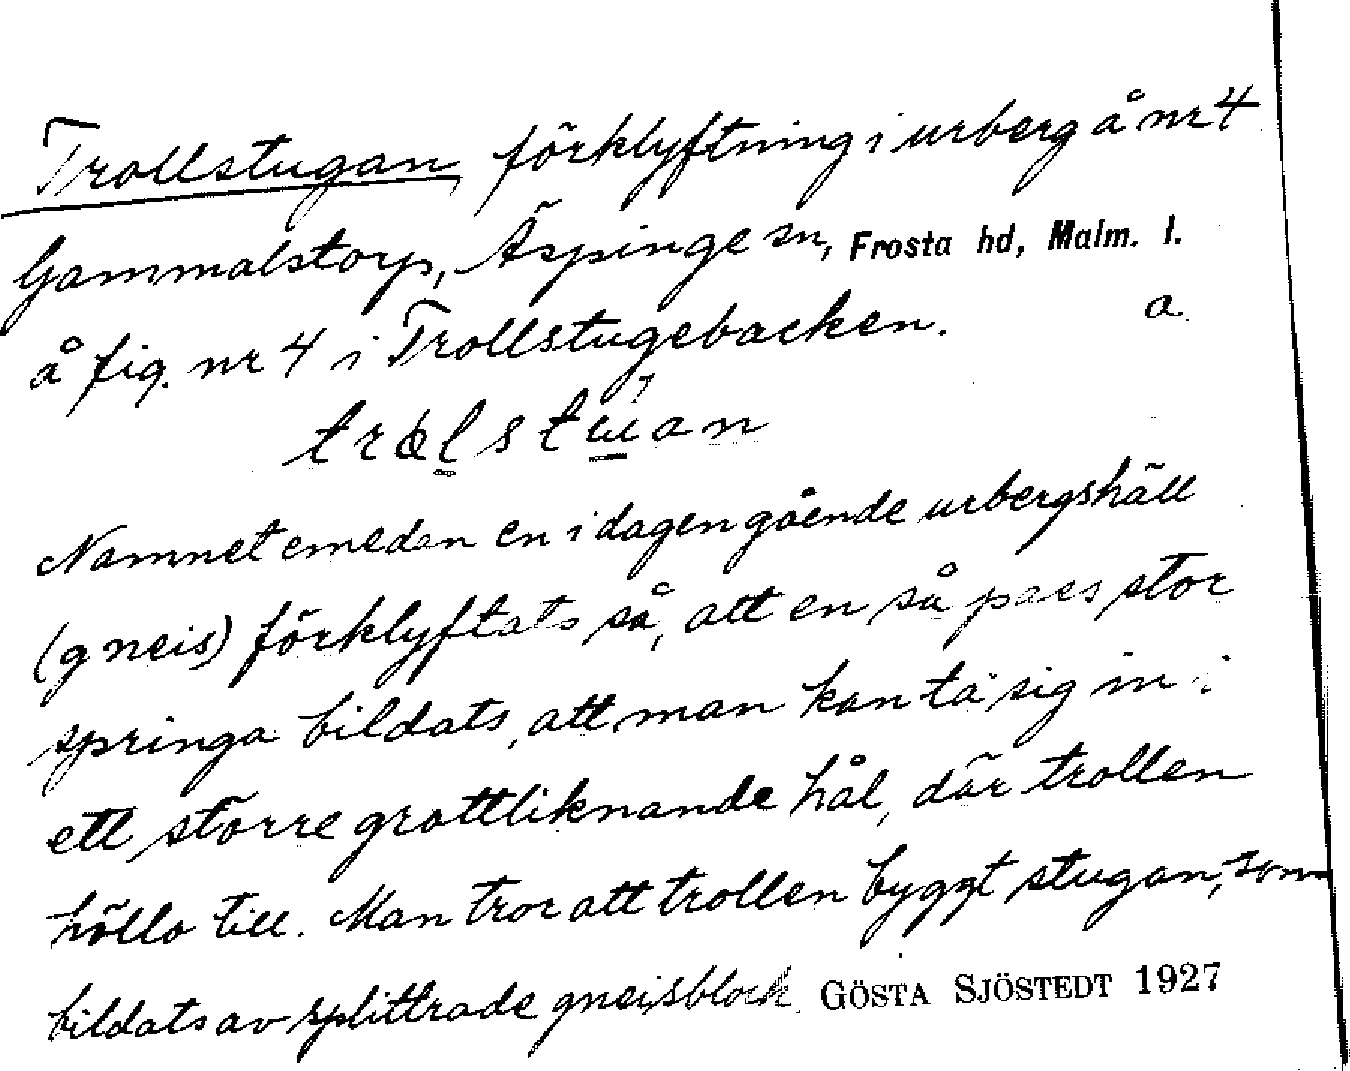 Trollstugan, förklyftning i urberg å nr 4
Gammalstorp, Äspinge sn, Frosta hd, Malm. l.
å fig. nr 4 i Trollstugebacken. a.
Namnet emedan en i dagen gående urbergshäll
(gneis) förklyftats så, att en så pass stor
springa bildats, att man kan ta sig in i
ett större grottliknande hål, där trollen
höllo till. Man tror att trollen byggt stugan, som
bildats av splittrade gneisblock. GÖSTA SJÖSTEDT 1927